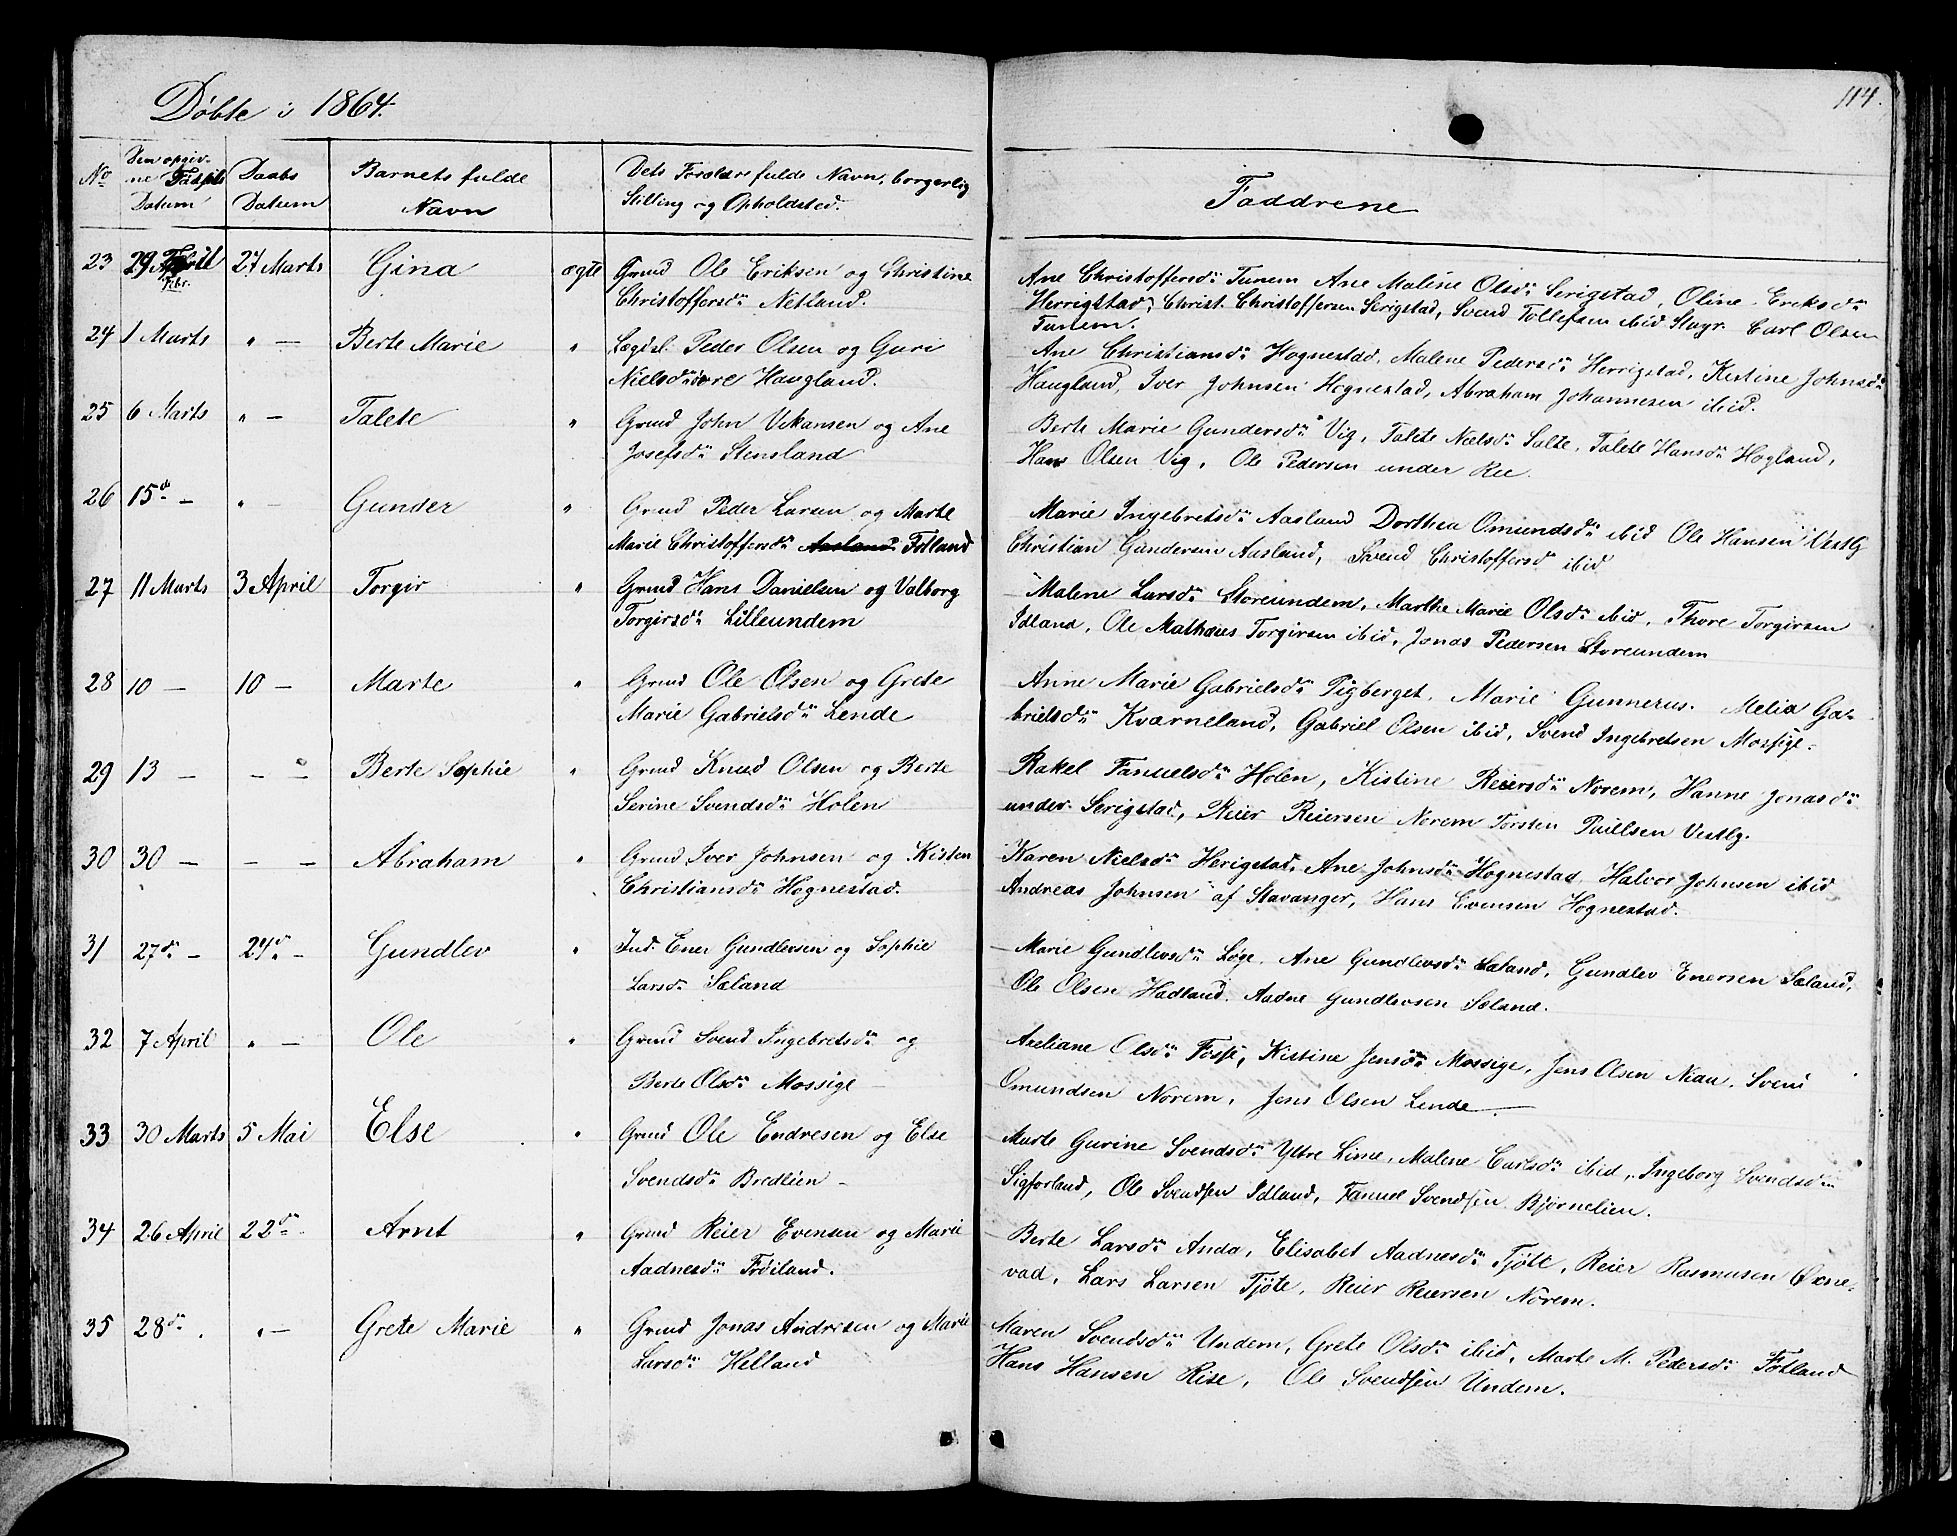 Døbte i 1864.
114.
No
Den opgiv-
ne Fødsels
Datum
Daabs
Datum
Barnets fulde
Navn
Dets Forældres fulde Navn, borgerlig
Stilling og Opholdsted.
Faddrene
23 29 Febr. 27 Marts Gina ægte Grmd Ole Eriksen og Christine
Christoffersdr Netland.
Ane Christoffersdr Tunem Ane Maline Olsdr Serigstad, Oline Eriksdr
Herrigstad, Christ. Christoffersen Serigstad, Svend Tollefsen ibid Stugr. Carl Olsen
Tunem.
24 1 Marts " — Berte Marie " Lægdsl. Peder Olsen og Guri
Nielsdr øvre Haugland.
Ane Christiansdr Hognestad, Malene Pedersdr Herrigstad, Kistine Johnsdr
Haugland, Iver Johnsen Hognestad, Abraham Johannesen ibid.
25 6 Marts " — Talete " Grmd John Vikansen og Ane
Josefsdr Stensland
Berte Marie Gundersdr Vig, Talete Nielsdr Salte, Talete Hansdr Hogland,
Hans Olsen Vig, Ole Pedersen under Ree.
26 15de — " — Gunder " Grmd Peder Larsen og Marte
Marie Christoffersdr Aasland Fotland
Marie Ingebretsdr Aasland Dorthea Omundsdr ibid Ole Hansen Vestly
Christian Gundersen Aasland, Svend Christoffersd ibid
27 11 Marts 3 April Torgir " Grmd Hans Danielsen og Valborg
Torgirsdr Lilleundem
Malene Larsdr Storeundem, Marthe Marie Olsdr ibid, Thore Torgirsen
Idland, Ole Mathæus Torgirsen ibid, Jonas Pedersen Storeundem
28 10 — 10 — Marte " Grmd Ole Olsen og Grete
Marie Gabrielsdr Lende
Anne Marie Gabrielsdr Tigberget, Marie Gunnerus. Melia Ga-
brielsdr Kværneland, Gabriel Olsen ibid, Svend Ingebretsen Mossige.
29 13 — — — Berte Sophie " Grmd Knud Olsen og Berte
Serine Svendsdr Holen
Rakel Fanuelsdr Holen, Kistine Reiersdr Norem, Hanne Jonasdr
under Serigstad, Reier Reiersen Norem Torsten Paulsen Vestly.
30 30 — — — Abraham " Grmd Iver Johnsen og Kisten
Christiansdr Hognestad.
Karen Nielsdr Herigstad, Ane Johnsdr Hognestad, Halvor Johnsen ibid
Andreas Johnsen af Stavanger, Hans Evensen Hognestad.
31 27de — 24de — Gundlev " Ind. Ener Gundlevsen og Sophie
Larsdr Sæland
Marie Gundlevsdr Løge, Ane Gundlevsdr Sæland, Gundlev Enersen Sæland,
Ole Olsen Hadland, Aadne Gundlevsen Sæland.
32 7 April " — Ole " Grmd Svend Ingebretsdr og
Berte Olsdr Mossige
Axeliane Olsdr Fosse, Kistine Jensdr Mossige, Jens Olsen Niau, Svend
Omundsen Norem, Jens Olsen Lende
33 30 Marts 5 Mai Else " Grmd Ole Endresen og Else
Svendsdr Bredlien
Marte Gurine Svendsdr Ytre Lime, Malene Carlsdr ibid, Ingeborg Svendsdr
Sigforland, Ole Svendsen Idland, Fanuel Svendsen Bjørnelien.
34 26 April 22de Arnt " Grmd Reier Evensen og Marie
Aadnesdr Frøiland.
Berte Larsdr Anda, Elisabet Aadnesdr Tjøtt, Reier Rasmusen Oxne-
vad, Lars Larsen Tjøte, Reier Reiersen Norem.
35 28de " — Grete Marie " Grmd Jonas Andresen og Marie
Larsdr Helland
Maren Svendsdr Undem, Grete Olsdr ibid, Marte M. Pedersdr Fotland
Hans Hansen Rise, Ole Svendsen Undem.